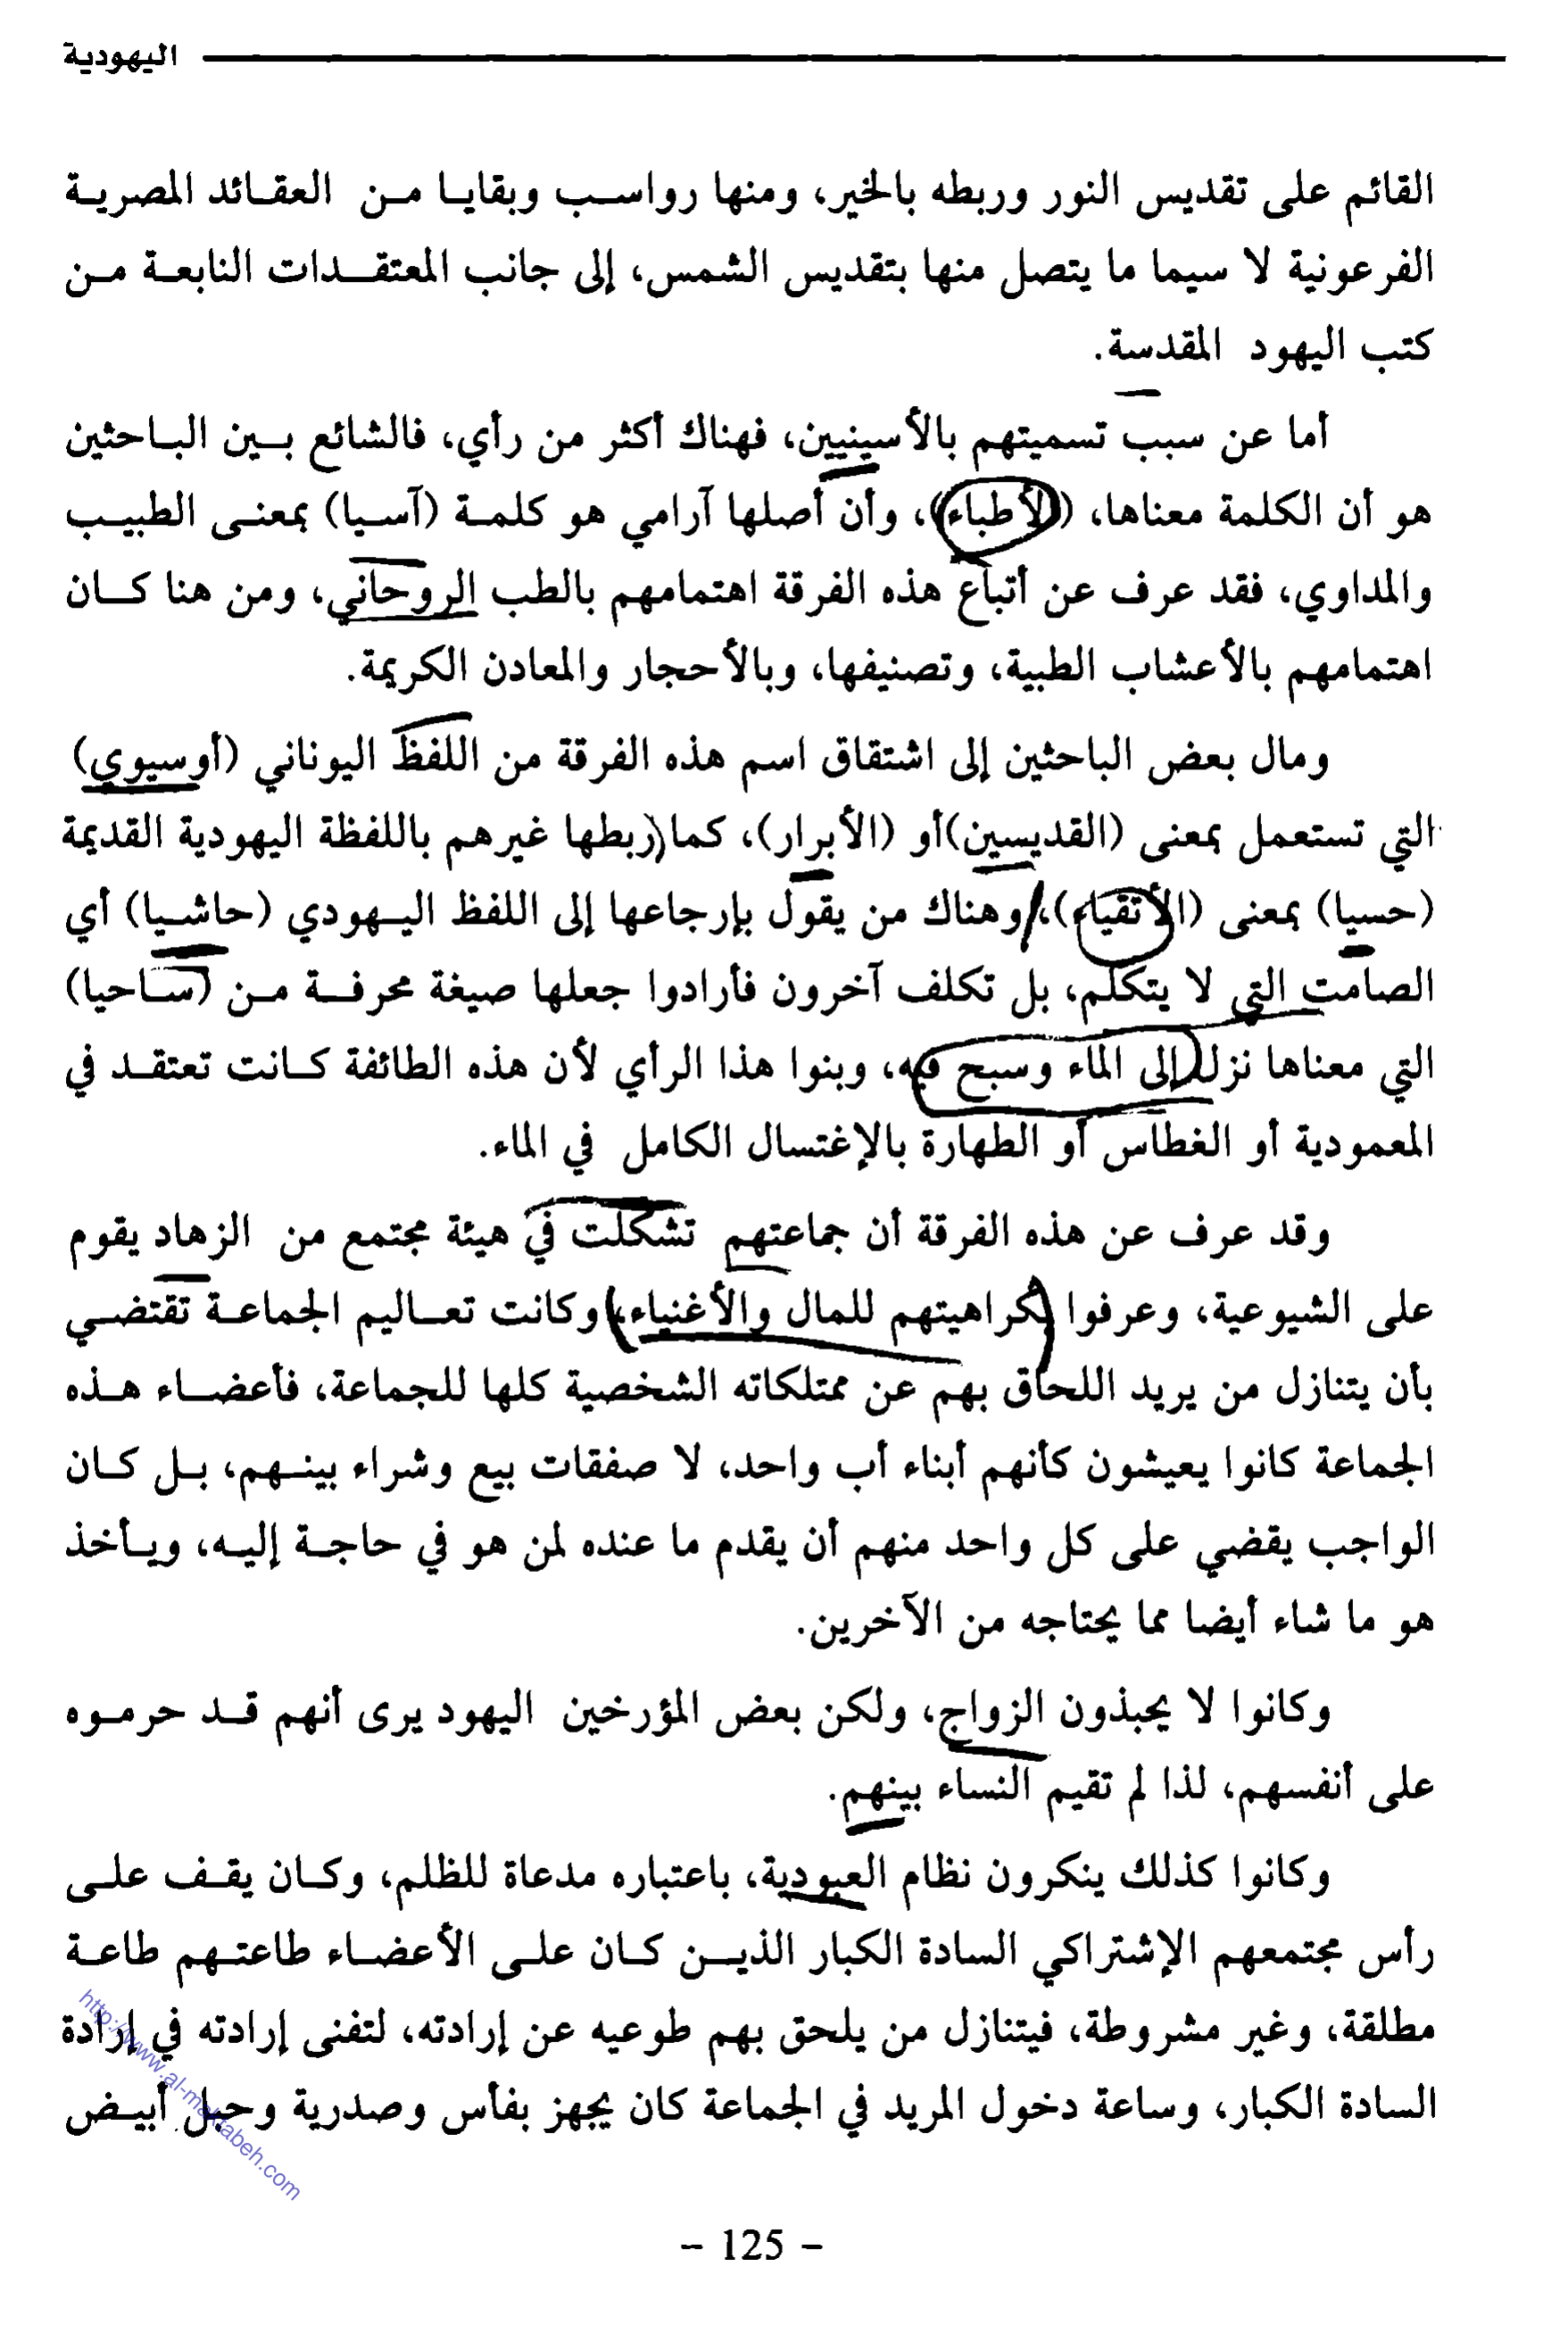 اليهودية
القائم على تقديس النور وربطه بالخير، ومنها رواسب وبقايا من العقائد المصرية
الفرعونية لا سيما ما يتصل منها بتقديس الشمس، إلى جانب المعتقدات النابعة من
كتب اليهود المقدسة.
أما عن سبب تسميتهم بالأسينيين، فهناك أكثر من رأي، فالشائع بين الباحثين
هو أن الكلمة معناها، (الأطباء)، وأن أصلها آرامي هو كلمة (آسيا) بمعنى الطبيب
والمداوي، فقد عرف عن أتباع هذه الفرقة اهتمامهم بالطب الروحاني، ومن هنا كان
اهتمامهم بالأعشاب الطبية، وتصنيفها، وبالأحجار والمعادن الكريمة.
ومال بعض الباحثين إلى اشتقاق اسم هذه الفرقة من اللفظ اليوناني (أوسيوي)
التي تستعمل بمعنى (القديسين)أو (الأبرار)، كما ربطها غيرهم باللفظة اليهودية القديمة
(حسيا) بمعنى (الأتقياء)، وهناك من يقول بإرجاعها إلى اللفظ اليهودي (حاشيا) أي
الصامت التي لا يتكلم، بل تكلف آخرون فأرادوا جعلها صيغة محرفة من (ساحيا)
التي معناها نزل إلى الماء وسبح فيه، وبنوا هذا الرأي لأن هذه الطائفة كانت تعتقد في
المعمودية أو الغطاس أو الطهارة بالإغتسال الكامل في الماء.
وقد عرف عن هذه الفرقة أن جماعتهم تشكلت في هيئة مجتمع من الزهاد يقوم
على الشيوعية، وعرفوا بكراهيتهم للمال والأغنياء، وكانت تعاليم الجماعة تقتضي
بأن يتنازل من يريد اللحاق بهم عن ممتلكاته الشخصية كلها للجماعة، فأعضاء هذه
الجماعة كانوا يعيشون كأنهم أبناء أب واحد، لا صفقات بيع وشراء بينهم، بل كان
الواجب يقضي على كل واحد منهم أن يقدم ما عنده لمن هو في حاجة إليه، ويأخذ
هو ما شاء أيضا مما يحتاجه من الآخرين.
وكانوا لا يحبذون الزواج، ولكن بعض المؤرخين اليهود يرى أنهم قد حرموه
على أنفسهم، لذا لم تقيم النساء بينهم.
وكانوا كذلك ينكرون نظام العبودية، باعتباره مدعاة للظلم، وكان يقف على
رأس مجتمعهم الإشتراكي السادة الكبار الذين كان على الأعضاء طاعتهم طاعة
مطلقة، وغير مشروطة، فيتنازل من يلحق بهم طوعيه عن إرادته، لتفنى إرادته في إرادة
السادة الكبار، وساعة دخول المريد في الجماعة كان يجهز بفأس وصدرية وحبل أبيض
http://www.al-maktabeh.com
- 125 -